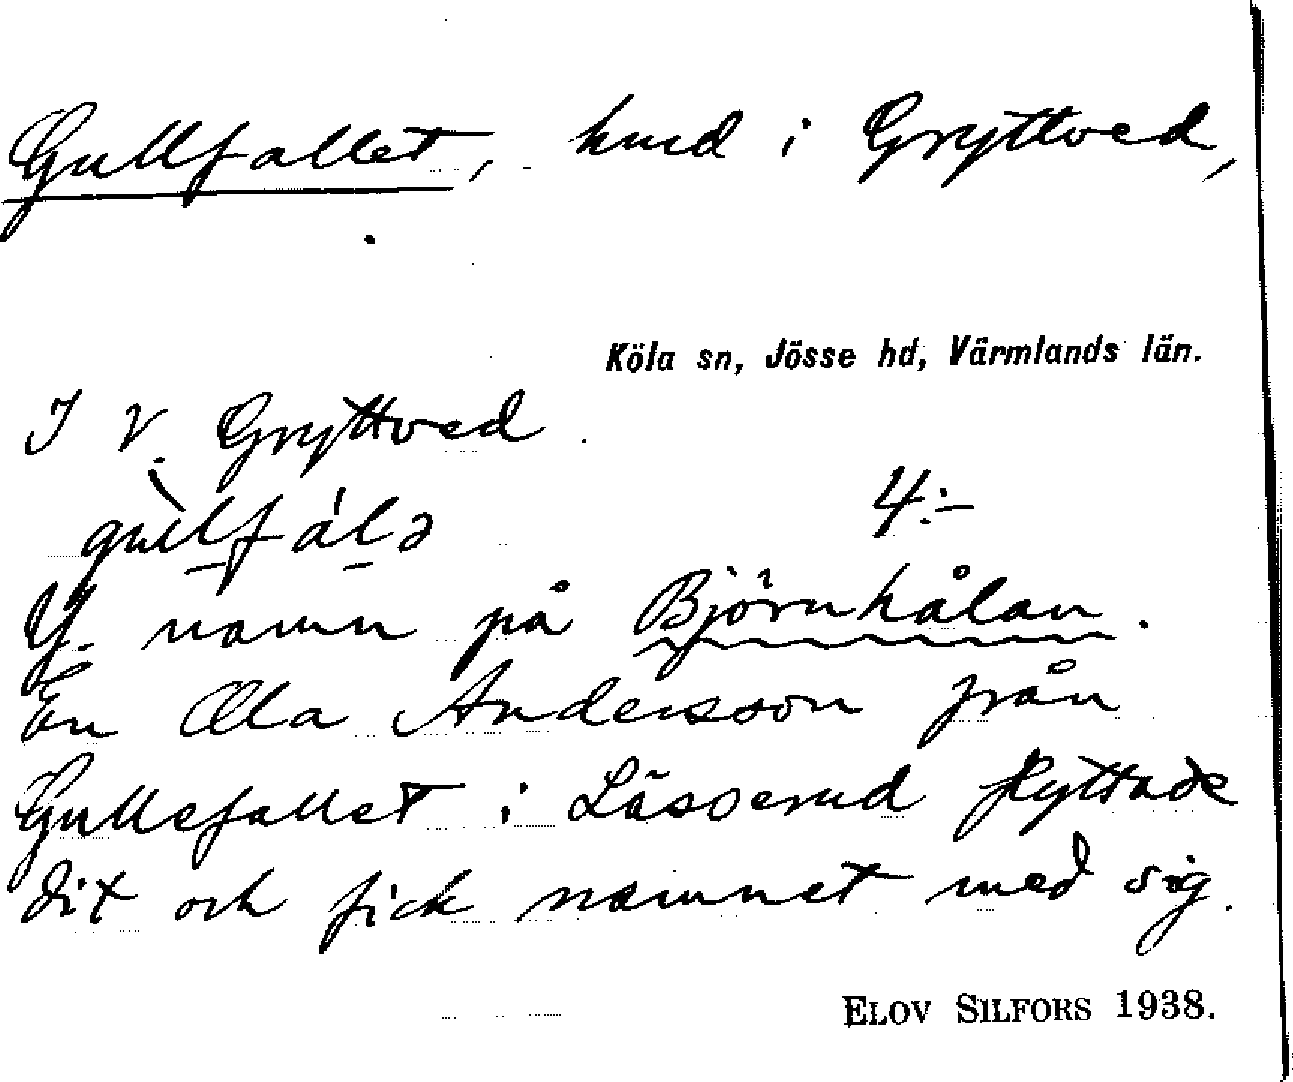 Gullfallet, hmd i Gryttved,
Köla sn, Jösse hd, Värmlands län.
I V. Gryttved.
gùlfál∂ 4:-
Y. namn på Björnhålan.
En Ola Andersson från
Gullefallet i Lässerud flyttade
dit och fick namnet med sig.
ELOV SILFORS 1938.